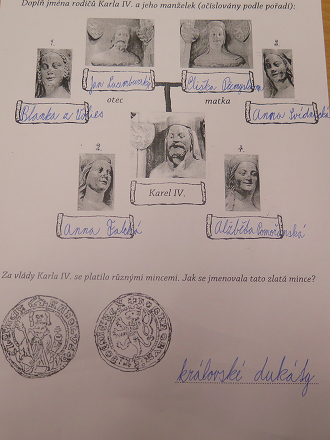 Doplň jména rodičů Karla IV. a jeho manželek (očíslovány podle pořadí):
1.
3.
Jan Lucemburský
Eliška Přemyslovna
otec
matka
Blanka z Valois
Anna Svídnická
2.
4.
Karel IV.
Anna Falcká
Alžběta Pomořanská
Za vlády Karla IV. se platilo různými mincemi. Jak se jmenovala tato zlatá mince?
královské dukáty